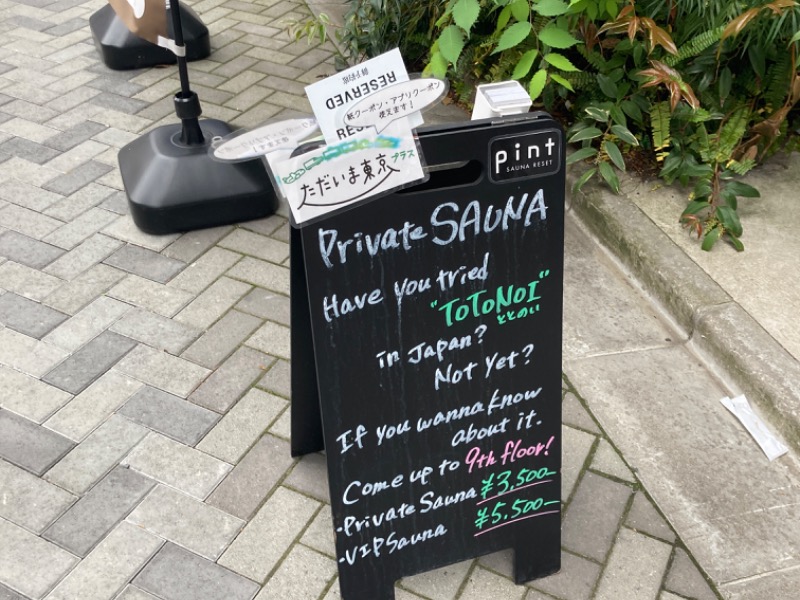 RESERVED
紙クーポン・アプリクーポン
使えます！
ただいま東京プラス
pint
SAUNA RESET
Private SAUNA
Have you tried
"ToToNoI"
ととのい
in Japan?
Not yet?
If you wanna know
about it.
Come up to 9th floor!
・Private Sauna ¥3,500-
・VIP Sauna ¥5,500-